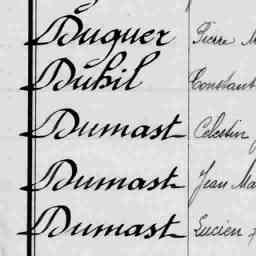 Duquer Pierre M
Duhil Constant
Dumast Celestin J
Dumast Jean Ma
Dumast Lucien